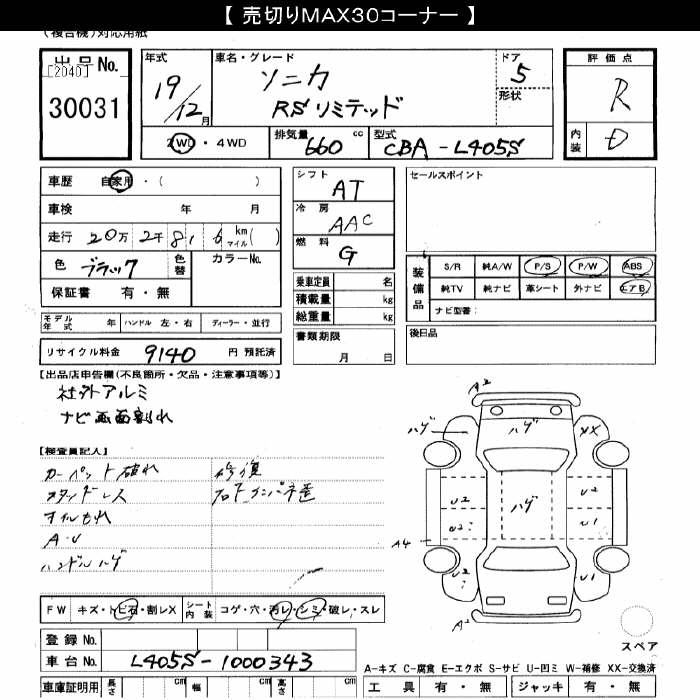 【 売切りMAX30コーナー 】
(複合機)対応用紙
出品No.
[2040]
30031
年式
19/12月
車名・グレード
ソニカ
RSリミテッド
ドア
5
形状
評価点
R
内装
D
2WD・4WD
排気量 660 cc
型式 CBA-L405S
車歴 自家用・( )
車検 年 月
走行 20万 2千 8 1 6 km マイル( )
色 ブラック 色替
カラーNo.
保証書 有・無
シフト AT
冷房 AAC
燃料 G
乗車定員 名
積載量 kg
総重量 kg
書類期限
月 日
セールスポイント
装備品
S/R 純A/W P/S P/W ABS
純TV 純ナビ 革シート 外ナビ エアB
ナビ型番:
後日品
モデル年式 年 ハンドル 左・右 ディーラー・並行
リサイクル料金 9140 円 預託済
【出品店申告欄(不良箇所・欠品・注意事項等)】
社外アルミ
ナビ画面割れ
【検査員記入】
カーペット破れ
スタッドレス
オイルもれ
A・U
ハンドルハゲ
修復
A2
ハゲ
ハゲ
XX
ハゲ
U2
U2
U2
U1
A4
U2
U1
A2
スペア
FW キズ・トビ石・割レX シート内装 コゲ・穴・汚レ・シミ・破レ・スレ
登録No.
車台No. L405S-1000343
車庫証明用 長さ cm 幅 cm 高さ cm
A-キズ C-腐食 E-エクボ S-サビ U-凹ミ W-補修 XX-交換済
工具 有・無 ジャッキ 有・無